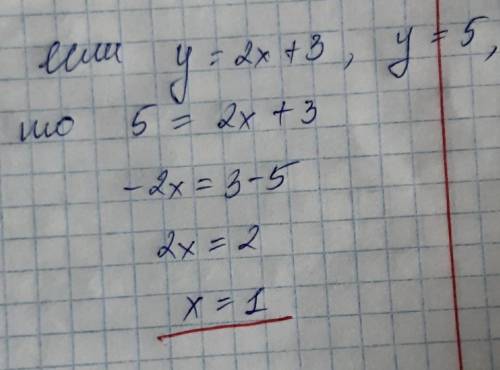 если y = 2x + 3, y = 5,
то 5 = 2x + 3
-2x = 3 - 5
2x = 2
x = 1